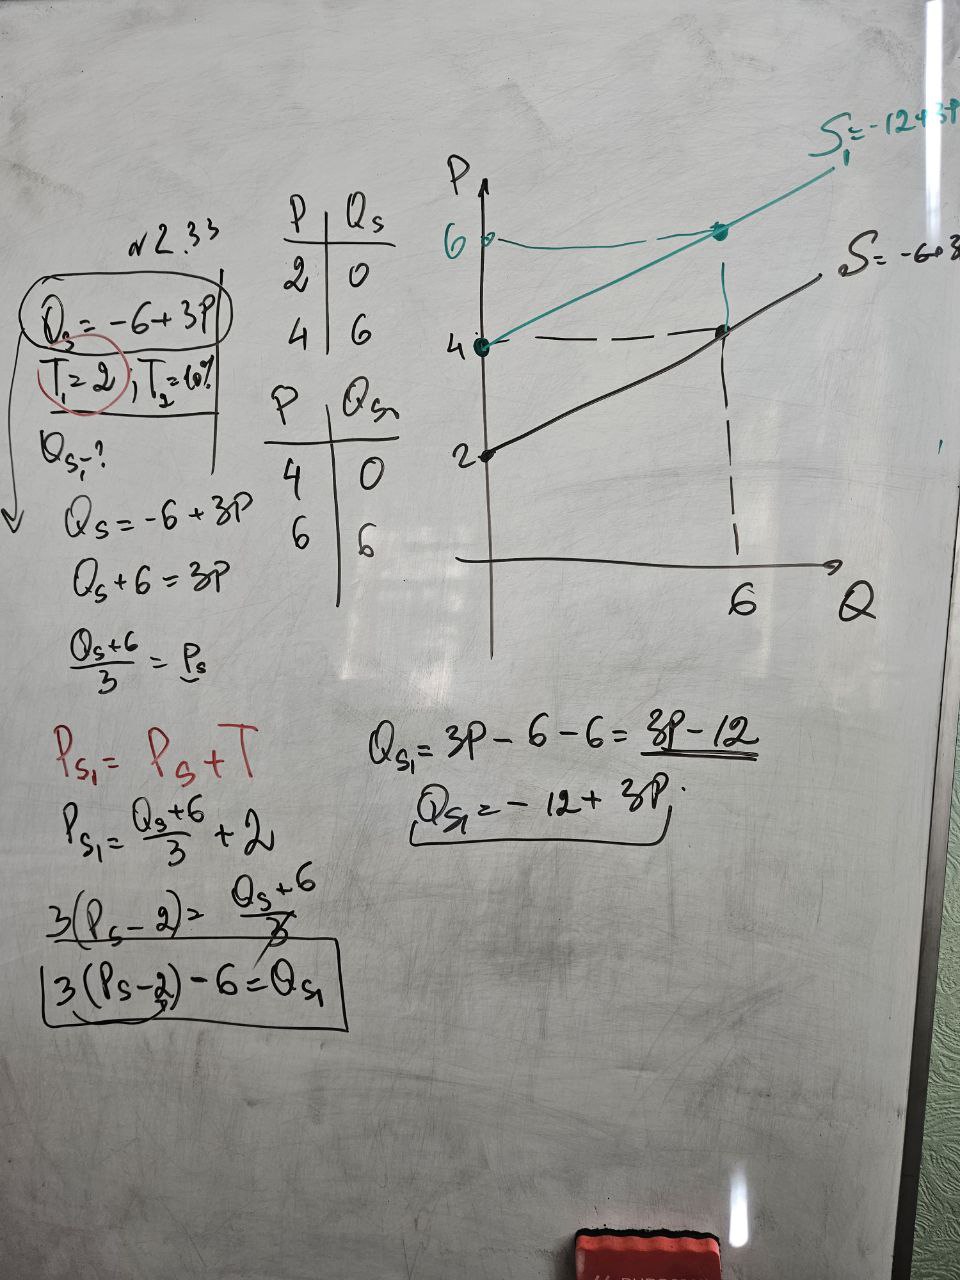 №2.33
Qs = -6+3P
T₁=2; T₂=10%
Qs₁-?
Qs = -6+3P
Qs+6 = 3P
(Qs+6)/3 = Ps
Ps₁= Ps+T
Ps₁= (Qs+6)/3 + 2
3(Ps-2)= (Qs+6)/3
3(Ps-2)-6=Qs₁
P | Qs
2 | 0
4 | 6
P | Qs₁
4 | 0
6 | 6
P
S₁=-12+3P
6
S=-6+3
4
2
6
Q
Qs₁= 3P-6-6= 3P-12
Qs₁=-12+3P.